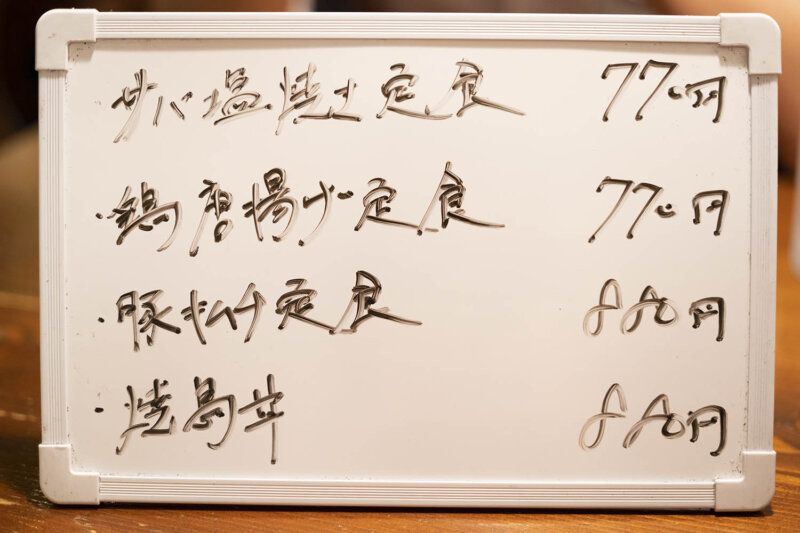 サバ塩焼き定食 770円
・鶏唐揚げ定食 770円
・豚キムチ定食 880円
・焼鳥丼 880円